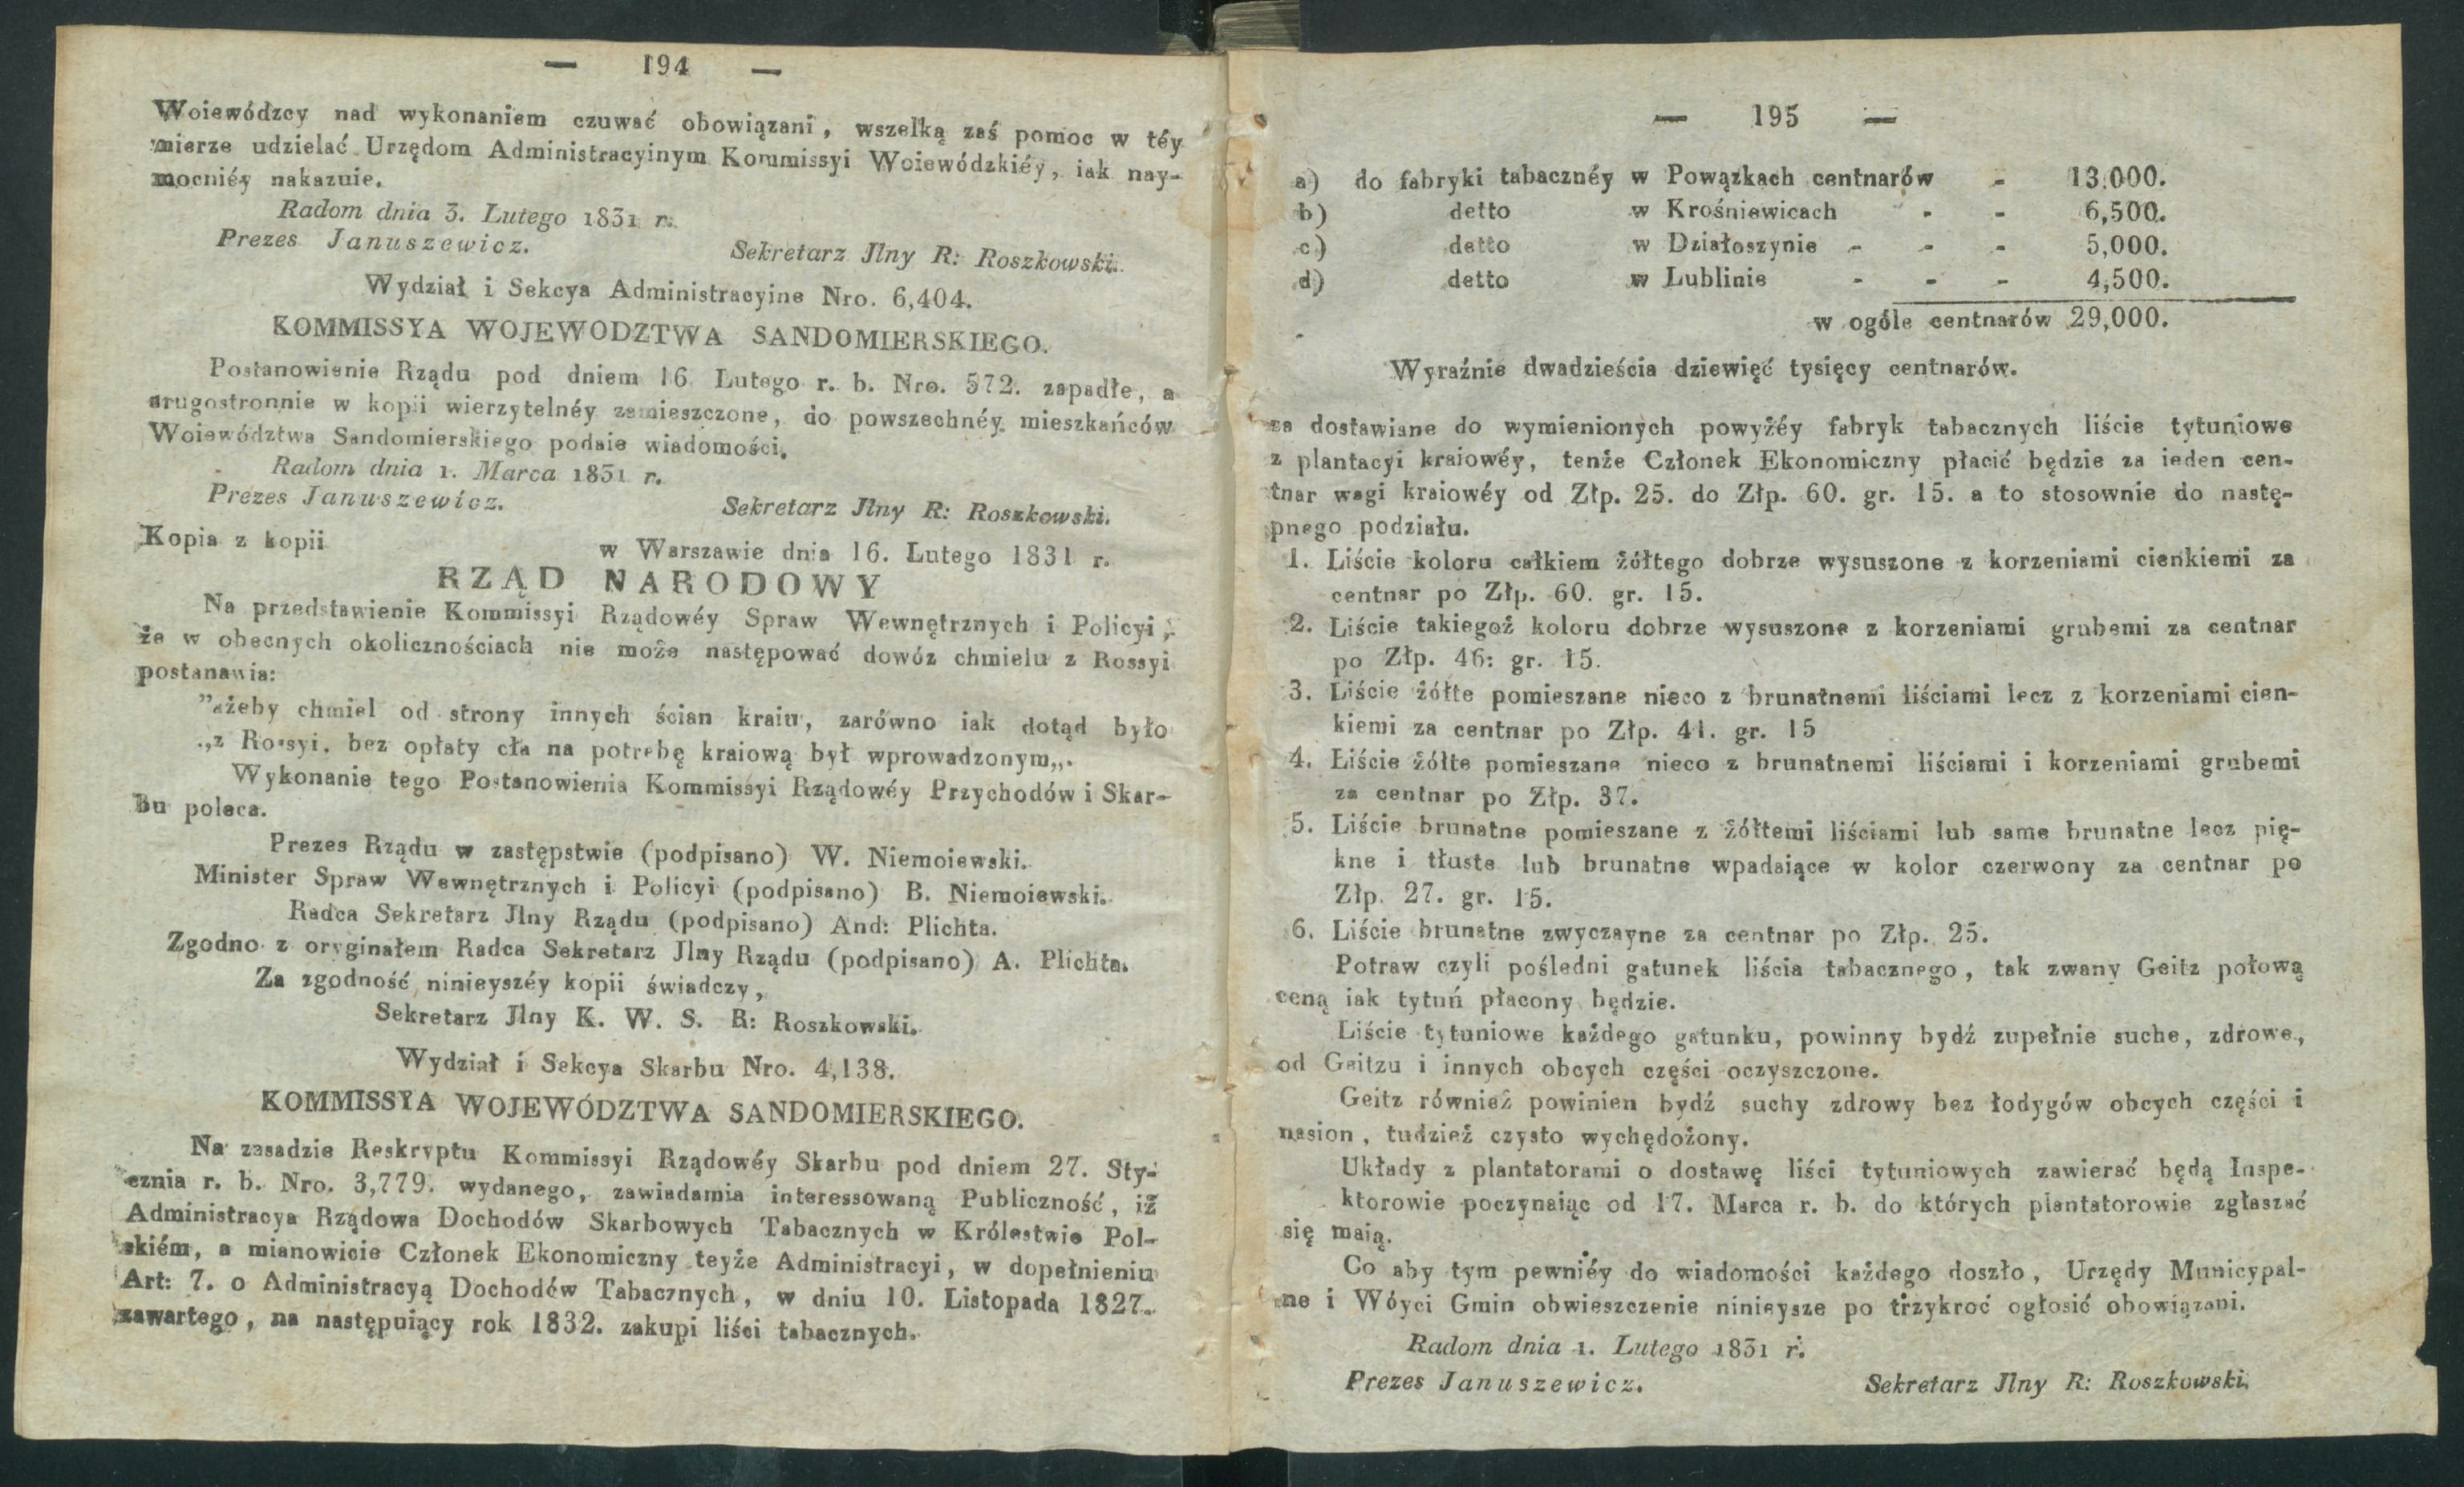 — 194 —
Woiewódzcy nad wykonaniem czuwać obowiązani, wszelką zaś pomoc w téy
mierze udzielać Urzędom Administracyinym Kommissyi Woiewódzkiéy, iak nay-
mocniéy nakazuie.
Radom dnia 3. Lutego 1831 r.
Prezes Januszewicz. Sekretarz Jlny R: Roszkowski.
Wydział i Sekcya Administracyine Nro. 6,404.
KOMMISSYA WOJEWODZTWA SANDOMIERSKIEGO.
Postanowienie Rządu pod dniem 16 Lutego r. b. Nro. 572. zapadłe, a
drugostronnie w kopii wierzytelnéy zamieszczone, do powszechnéy mieszkańców
Woiewództwa Sandomierskiego podaie wiadomości.
Radom dnia 1. Marca 1831 r.
Prezes Januszewicz. Sekretarz Jlny R: Roszkowski.
Kopia z kopii w Warszawie dnia 16. Lutego 1831 r.
RZĄD NARODOWY
Na przedstawienie Kommissyi Rządowéy Spraw Wewnętrznych i Policyi,
że w obecnych okolicznościach nie może następować dowóz chmielu z Rossyi
postanawia:
"ażeby chmiel od strony innych ścian kraiu, zarówno iak dotąd było
„z Rossyi, bez opłaty cła na potrzebę kraiową był wprowadzonym„.
Wykonanie tego Postanowienia Kommissyi Rządowéy Przychodów i Skar-
bu poleca.
Prezes Rządu w zastępstwie (podpisano) W. Niemoiewski.
Minister Spraw Wewnętrznych i Policyi (podpisano) B. Niemoiewski.
Radca Sekretarz Jlny Rządu (podpisano) And: Plichta.
Zgodno z oryginałem Radca Sekretarz Jlny Rządu (podpisano) A. Plichta.
Za zgodność ninieyszéy kopii świadczy,
Sekretarz Jlny K. W. S. R: Roszkowski.
Wydział i Sekcya Skarbu Nro. 4,138.
KOMMISSYA WOJEWÓDZTWA SANDOMIERSKIEGO.
Na zasadzie Reskryptu Kommissyi Rządowéy Skarbu pod dniem 27. Sty-
cznia r. b. Nro. 3,779. wydanego, zawiadamia interessowaną Publiczność, iż
Administracya Rządowa Dochodów Skarbowych Tabacznych w Królestwie Pol-
skiém, a mianowicie Członek Ekonomiczny teyże Administracyi, w dopełnieniu
Art: 7. o Administracyą Dochodów Tabacznych, w dniu 10. Listopada 1827.
zawartego, na następuiący rok 1832. zakupi liści tabacznych.
— 195 —
a) do fabryki tabacznéy w Powązkach centnarów - 13,000.
b) detto w Krośniewicach - - 6,500.
c) detto w Działoszynie - - - 5,000.
d) detto w Lublinie - - - 4,500.
w ogóle centnarów 29,000.
Wyraźnie dwadzieścia dziewięć tysięcy centnarów.
za dostawiane do wymienionych powyżéy fabryk tabacznych liście tytuniowe
z plantacyi kraiowéy, tenże Członek Ekonomiczny płacić będzie za ieden cen-
tnar wagi kraiowéy od Złp. 25. do Złp. 60. gr. 15. a to stosownie do nastę-
pnego podziału.
1. Liście koloru całkiem żółtego dobrze wysuszone z korzeniami cienkiemi za
centnar po Złp. 60. gr. 15.
2. Liście takiegoż koloru dobrze wysuszone z korzeniami grubemi za centnar
po Złp. 46: gr. 15.
3. Liście żółte pomieszane nieco z brunatnemi liściami lecz z korzeniami cien-
kiemi za centnar po Złp. 41. gr. 15
4. Liście żółte pomieszane nieco z brunatnemi liściami i korzeniami grubemi
za centnar po Złp. 37.
5. Liście brunatne pomieszane z żółtemi liściami lub same brunatne lecz pię-
kne i tłuste lub brunatne wpadaiące w kolor czerwony za centnar po
Złp. 27. gr. 15.
6. Liście brunatne zwyczayne za centnar po Złp. 25.
Potraw czyli pośledni gatunek liścia tabacznego, tak zwany Geitz połową
ceną iak tytuń płacony będzie.
Liście tytuniowe każdego gatunku, powinny bydź zupełnie suche, zdrowe,
od Geitzu i innych obcych części oczyszczone.
Geitz również powinien bydź suchy zdrowy bez łodygów obcych części i
nasion, tudzież czysto wychędożony.
Układy z plantatorami o dostawę liści tytuniowych zawierać będą Inspe-
ktorowie poczynaiąc od 17. Marca r. b. do których plantatorowie zgłaszać
się maią.
Co aby tym pewniéy do wiadomości każdego doszło, Urzędy Municypal-
ne i Wóyci Gmin obwieszczenie ninieysze po trzykroć ogłosić obowiązani.
Radom dnia 1. Lutego 1831 r.
Prezes Januszewicz. Sekretarz Jlny R: Roszkowski.